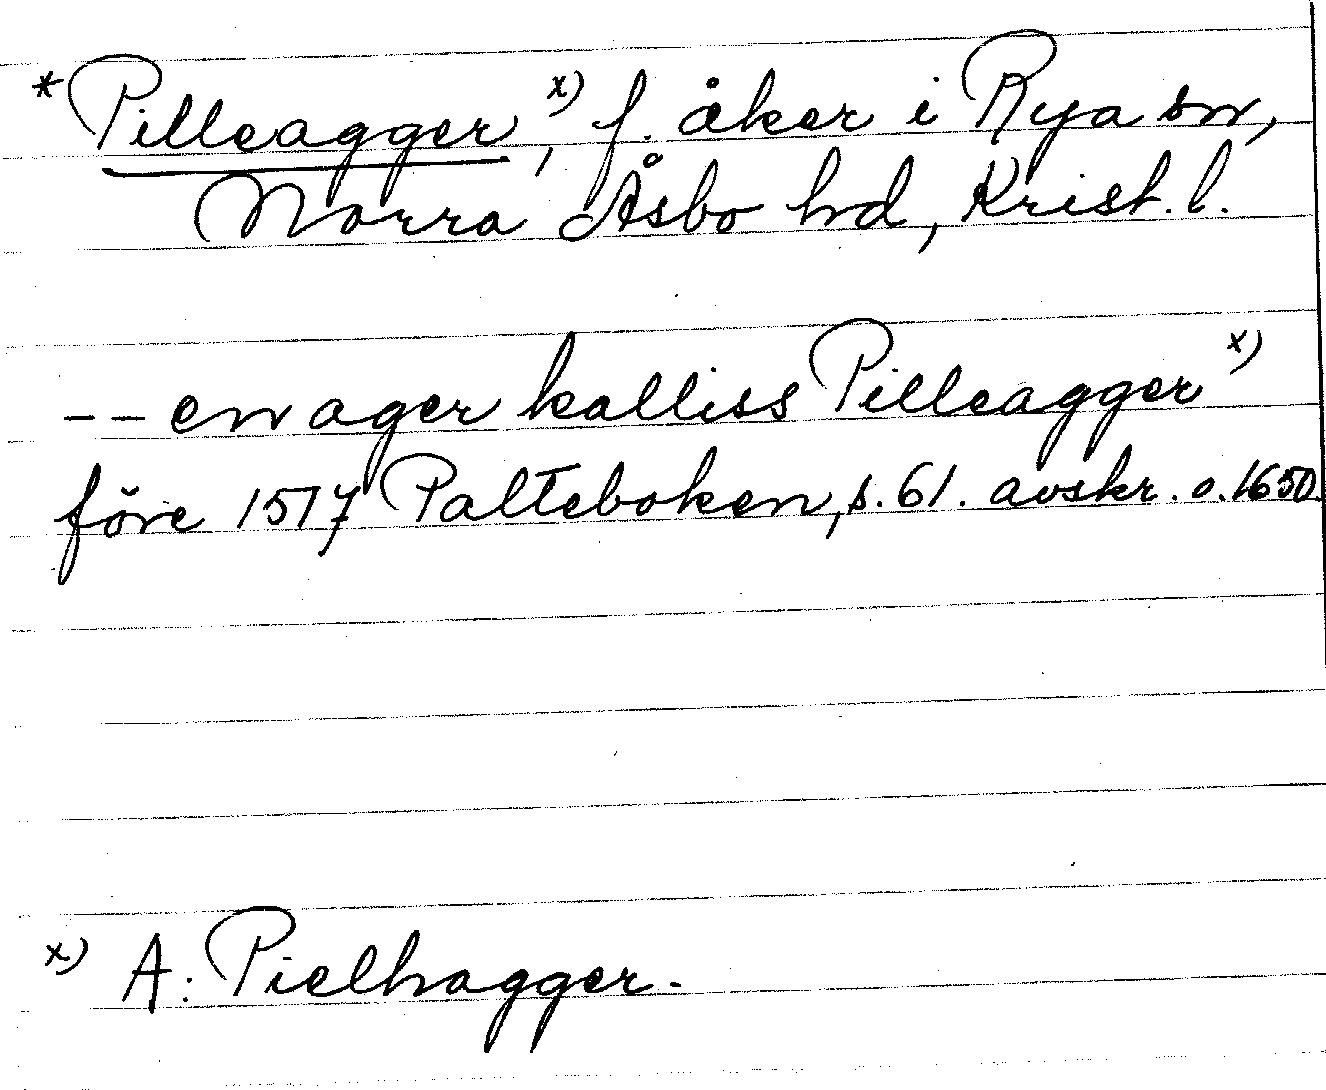 * Pilleagger, x) f. åker i Rya sn,
Norra Åsbo hd, Krist. l.
-- en ager kalliss Pilleagger x)
före 1517 Palteboken, s. 61. avskr. o. 1650
x) A: Pielhagger.